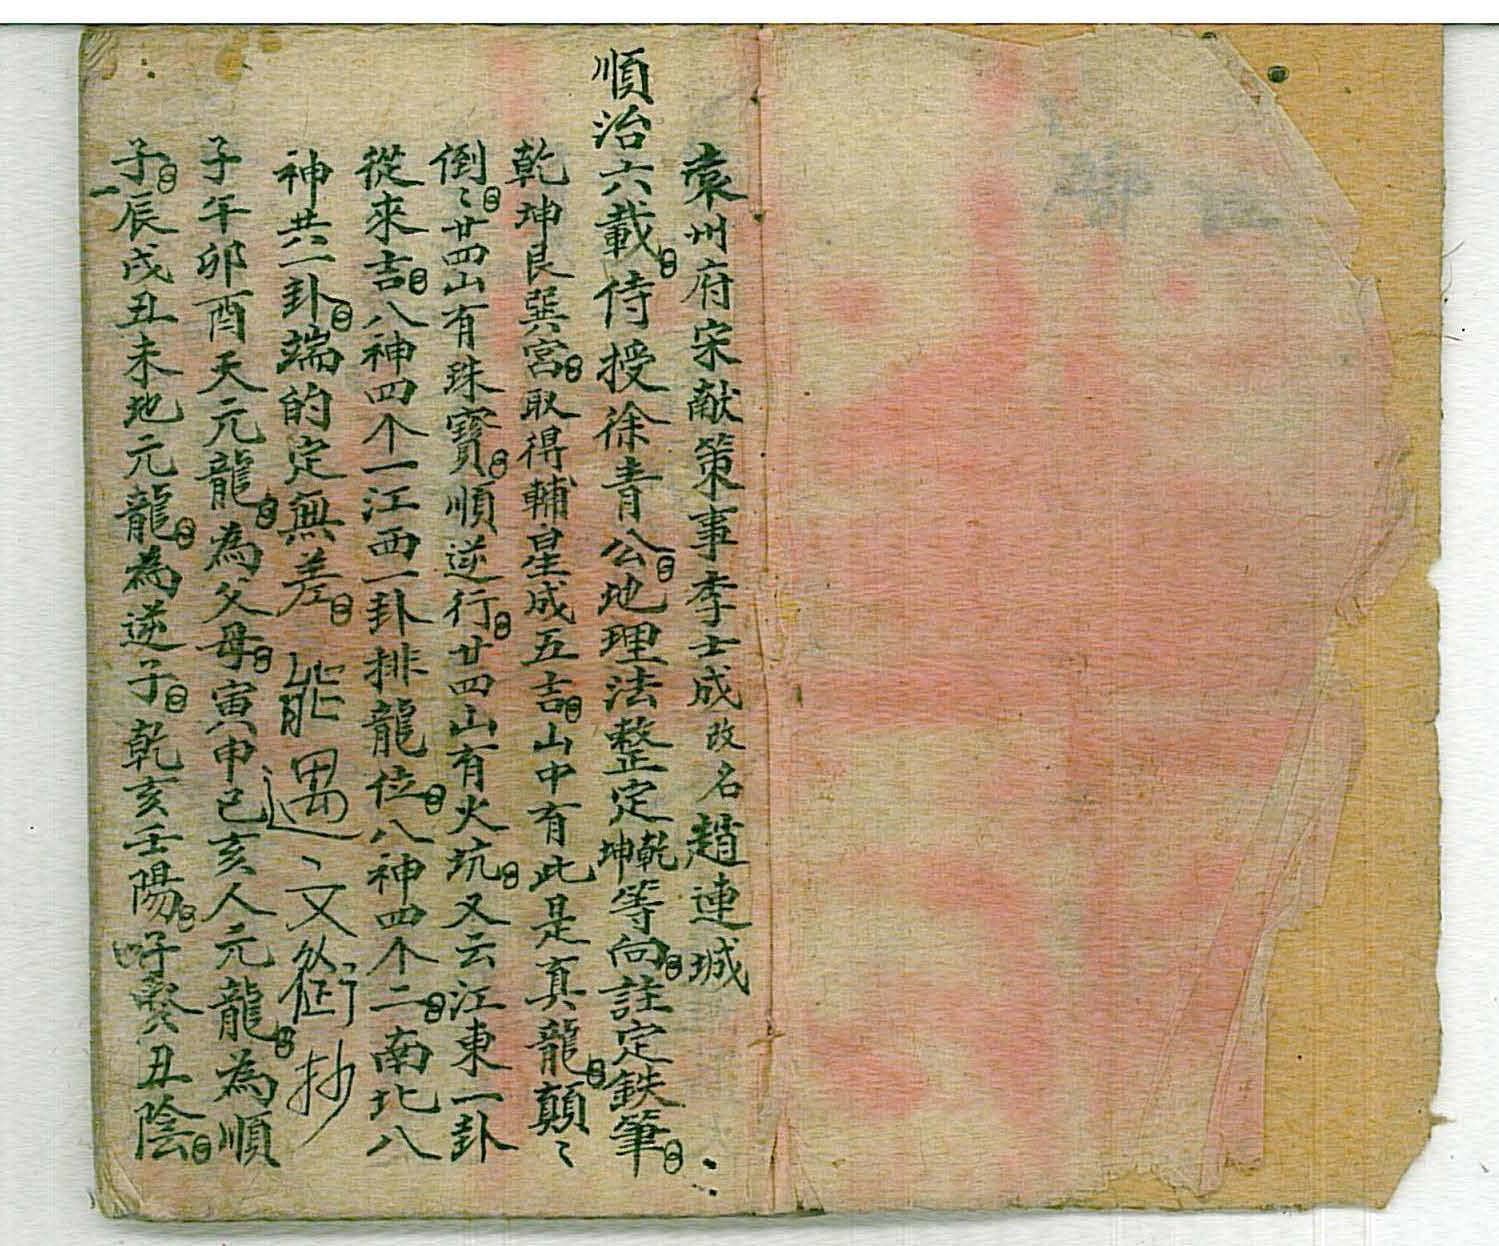 袁州府宋献策事李士成改名趙連城
順治六載侍授徐青公地理法整定乾坤等向註定鉄筆
乾坤艮巽宮取得輔星成五吉山中有此是真龍顛〻
倒〻廿四山有珠寶順逆行廿四山有火坑又云江東一卦
從來吉八神四个一江西一卦排龍位八神四个二南北八
神共一卦端的定無差 能遇 文 抄
子午卯酉天元龍為父母寅申巳亥人元龍為順
子辰戌丑未地元龍為逆子乾亥壬陽子癸丑陰